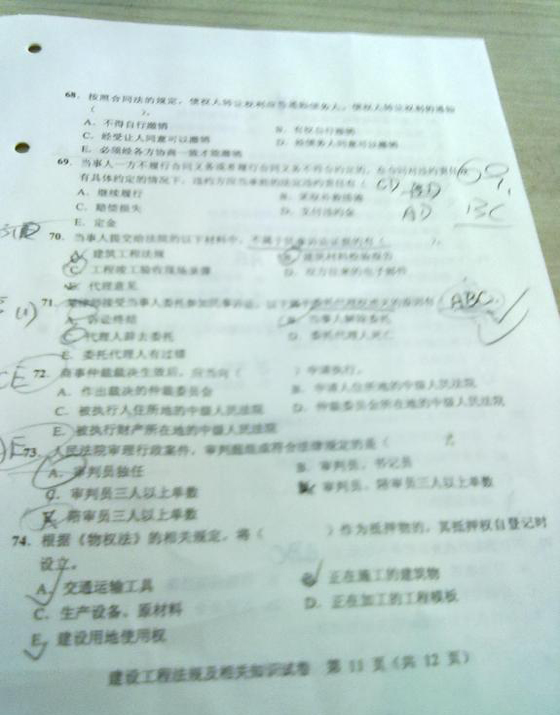 68. 按照合同法的规定，债权人转让权利应当通知债务人，债权人转让权利的通知
（ ）。
A. 不得自行撤销 B. 有权自行撤销
C. 经受让人同意可以撤销 D. 经债务人同意可以撤销
E. 必须经各方协商一致才能撤销
69. 当事人一方不履行合同义务或者履行合同义务不符合约定的，在合同对违约责任没
有具体约定的情况下，违约方应当承担的法定违约责任有（ CD
A. 继续履行 B. 采取补救措施
C. 赔偿损失 D. 支付违约金 AD BC
E. 定金
70. 当事人提交给法院的以下材料中，不属于民事诉讼证据的有（ ）。
A. 建筑工程法规 B. 建筑材料检验报告
C. 工程竣工验收现场录像 D. 双方往来的电子邮件
E. 代理意见
71. 律师接受当事人委托参加民事诉讼，以下属于委托代理权消灭的原因有 ABC
A. 诉讼终结 B. 当事人解除委托
C. 代理人辞去委托 D. 委托代理人死亡
E. 委托代理人有过错
72. 商事仲裁裁决生效后，应当向（ ）申请执行。
A. 作出裁决的仲裁委员会 B. 申请人住所地的中级人民法院
C. 被执行人住所地的中级人民法院 D. 仲裁委员会所在地的中级人民法院
E. 被执行财产所在地的中级人民法院
73. 人民法院审理行政案件，审判庭组成符合法律规定的是（
A. 审判员独任 B. 审判员、书记员
C. 审判员三人以上单数 D. 审判员、陪审员三人以上单数
E. 陪审员三人以上单数
74. 根据《物权法》的相关规定，将（ ）作为抵押物的，其抵押权自登记时
设立。
A. 交通运输工具 B. 正在施工的建筑物
C. 生产设备、原材料 D. 正在加工的工程模板
E. 建设用地使用权
建设工程法规及相关知识试卷 第 11 页（共 12 页）